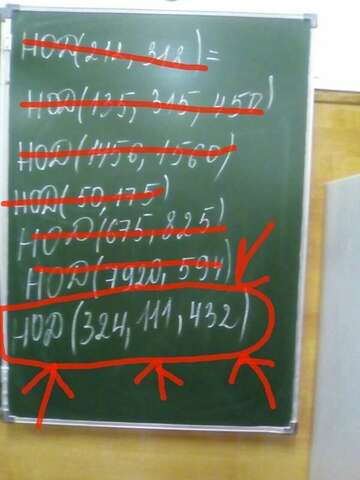 НОД(212, 318)=
НОД(135, 315, 450)
НОД(1456, 1560)
НОД(50,175)
НОД(675, 825)
НОД(7920, 594)
НОД(324, 111, 432)